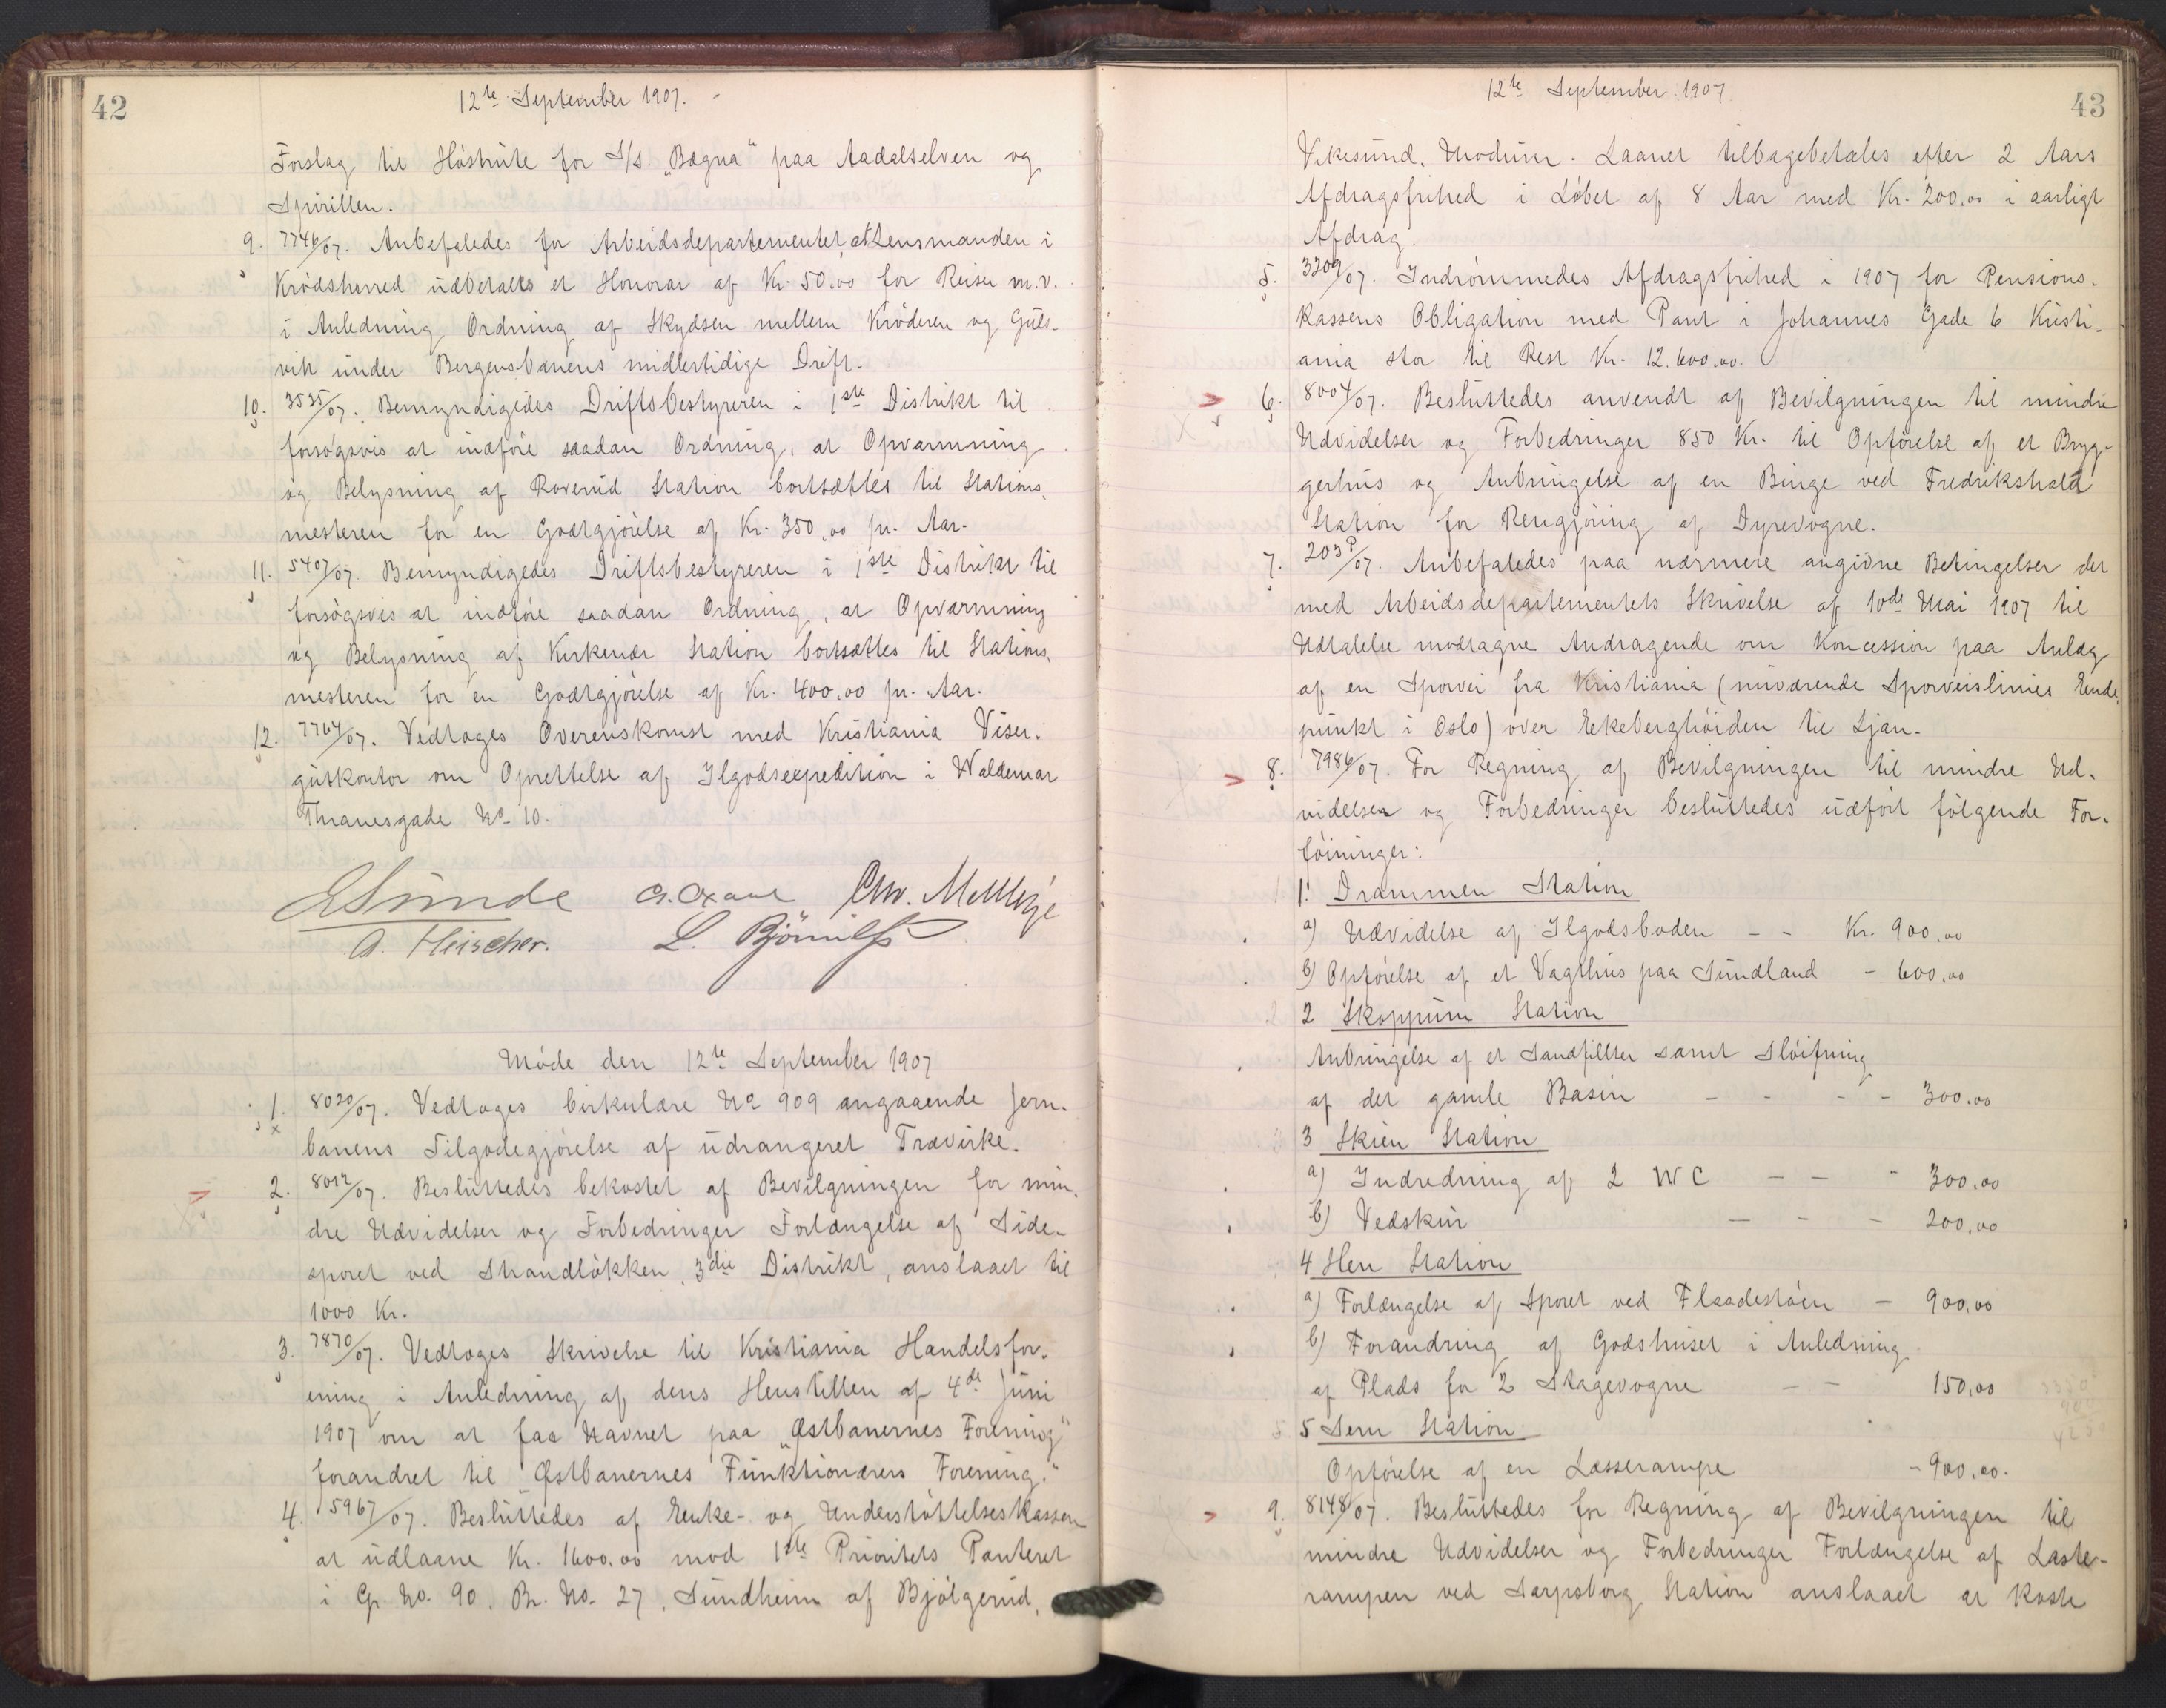 42
12te September 1907.
Forslag til Høstrute for S/s „Bægna" paa Aadalselven og
Spirillen.
9. 7746/07. Anbefaledes for Arbeidsdepartementet at Lensmanden i
Krødsherred udbetales et Honorar af Kr. 50.00 for Reiser m.v.
i Anledning Ordning af Skydsen mellem Krøderen og Guls-
vik under Bergensbanens midlertidige Drift.
10. 3535/07. Bemyndigedes Driftsbestyreren i 1ste Distrikt til
forsøgsvis at indføre saadan Ordning, at Opvarmning
og Belysning af Roverud Station bortsættes til Stations-
mesteren for en Godtgjørelse af Kr. 350.00 pr. Aar.
11. 5407/07. Bemyndigedes Driftsbestyreren i 1ste Distrikt til
forsøgsvis at indføre saadan Ordning, at Opvarmning
og Belysning af Kirkenær Station bortsættes til Stations-
mesteren for en Godtgjørelse af Kr. 400.00 pr. Aar.
12. 7764/07. Vedtoges Overenskomst med Kristiania Viser-
gutkontor om Oprettelse af Ilgodsexpedition i Waldemar
Thranesgade No 10.
E Sunde Chr.
A. Fleischer. L.
Møde den 12te September 1907
1. 8020/07. Vedtoges Cirkulære No 909 angaaende Jern-
banens Tilgodegjørelse af udrangeret Trævirke.
2. 8012/07. Besluttedes bekostet af Bevilgningen for min-
dre Udvidelser og Forbedringer Forlængelse af Side-
sporet ved Strandløkken, 3die Distrikt, anslaaet til
1000 Kr.
3. 7870/07. Vedtoges Skrivelse til Kristiania Handelsfor-
ening i Anledning af dens Henstillen af 4de Juni
1907 om at faa Navnet paa „Østbanernes Forening"
forandret til „Østbanernes Funktionærers Forening."
4. 5967/07. Besluttedes af Enke- og Understøttelseskassen
at udlaane Kr. 1600.00 mod 1ste Prioritets Panteret
i G. No. 90, Br. No. 27, Sundheim af Bjølgerud,
43
12te September 1907
Vikesund, Modum. Laanet tilbagebetales efter 2 Aars
Afdragsfrihed i Løbet af 8 Aar med Kr. 200.00 i aarligt
Afdrag.
5. 3209/07. Indrømmedes Afdragsfrihed i 1907 for Pensions-
kassens Obligation med Pant i Johannes Gade 6 Kristi-
ania stor til Rest Kr. 12.600.00.
6. 8004/07. Besluttedes anvendt af Bevilgningen til mindre
Udvidelser og Forbedringer 850 Kr. til Opførelse af et Bryg-
gerhus og Anbringelse af en Binge ved Fredrikshald
Station for Rengjøring af Dyrevogne.
7. 203P/07. Anbefaledes paa nærmere angivne Betingelser det
med Arbeidsdepartementets Skrivelse af 10de Mai 1907 til
Udtalelse modtagne Andragende om Koncession paa Anlæg
af en Sporvei fra Kristiania (nuværende Sporveislinies Ende-
punkt i Oslo) over Ekeberghøiden til Ljan.
8. 7986/07. For Regning af Bevilgningen til mindre Ud-
videlser og Forbedringer besluttedes udført følgende For-
føininger:
1. Drammen Station
a) Udvidelse af Ilgodsboden - - Kr. 900.00
b) Opførelse af et Vagthus paa Sundland - 600.00
2 Skoppum Station
Anbringelse af et Sandfillter samt Sløifning
af det gamle Basin - - - - 300.00
3 Skien Station
a) Indredning af 2 WC - - - 300.00
b) Vedskur - - - 200.00
4 Hen Station
a) Forlængelse af Sporet ved Flaadestøen - 900.00
b) Forandring af Godshuset i Anledning
af Plads for 2 Stagevogne - - 150.00
5 Sem Station
Opførelse af en Læsserampe - 900.00.
9. 8148/07. Besluttedes for Regning af Bevilgningen til
mindre Udvidelser og Forbedringer Forlængelse af Laste-
rampen ved Sarpsborg Station anslaaet at koste